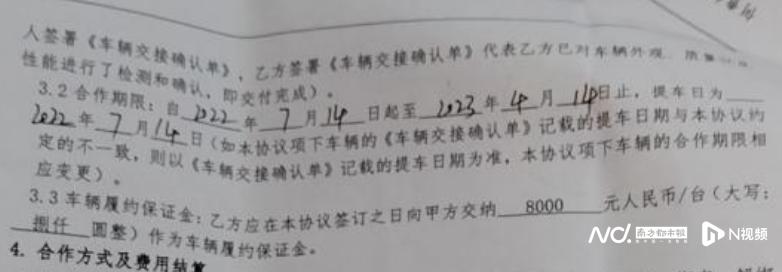 人签署《车辆交接确认单》，乙方签署《车辆交接确认单》代表乙方已对车辆外观、质量
性能进行了检测和确认，即交付完成）。
3.2 合作期限：自 2022 年 7 月 14 日起至 2023 年 4 月 14 日止，提车日为
2022 年 7 月 14 日（如本协议项下车辆的《车辆交接确认单》记载的提车日期与本协议约
定的不一致，则以《车辆交接确认单》记载的提车日期为准，本协议项下车辆的合作期限相
应变更）。
3.3 车辆履约保证金：乙方应在本协议签订之日向甲方交纳 8000 元人民币/台（大写：
捌仟 圆整）作为车辆履约保证金。
4. 合作方式及费用结算
南方都市报
N视频